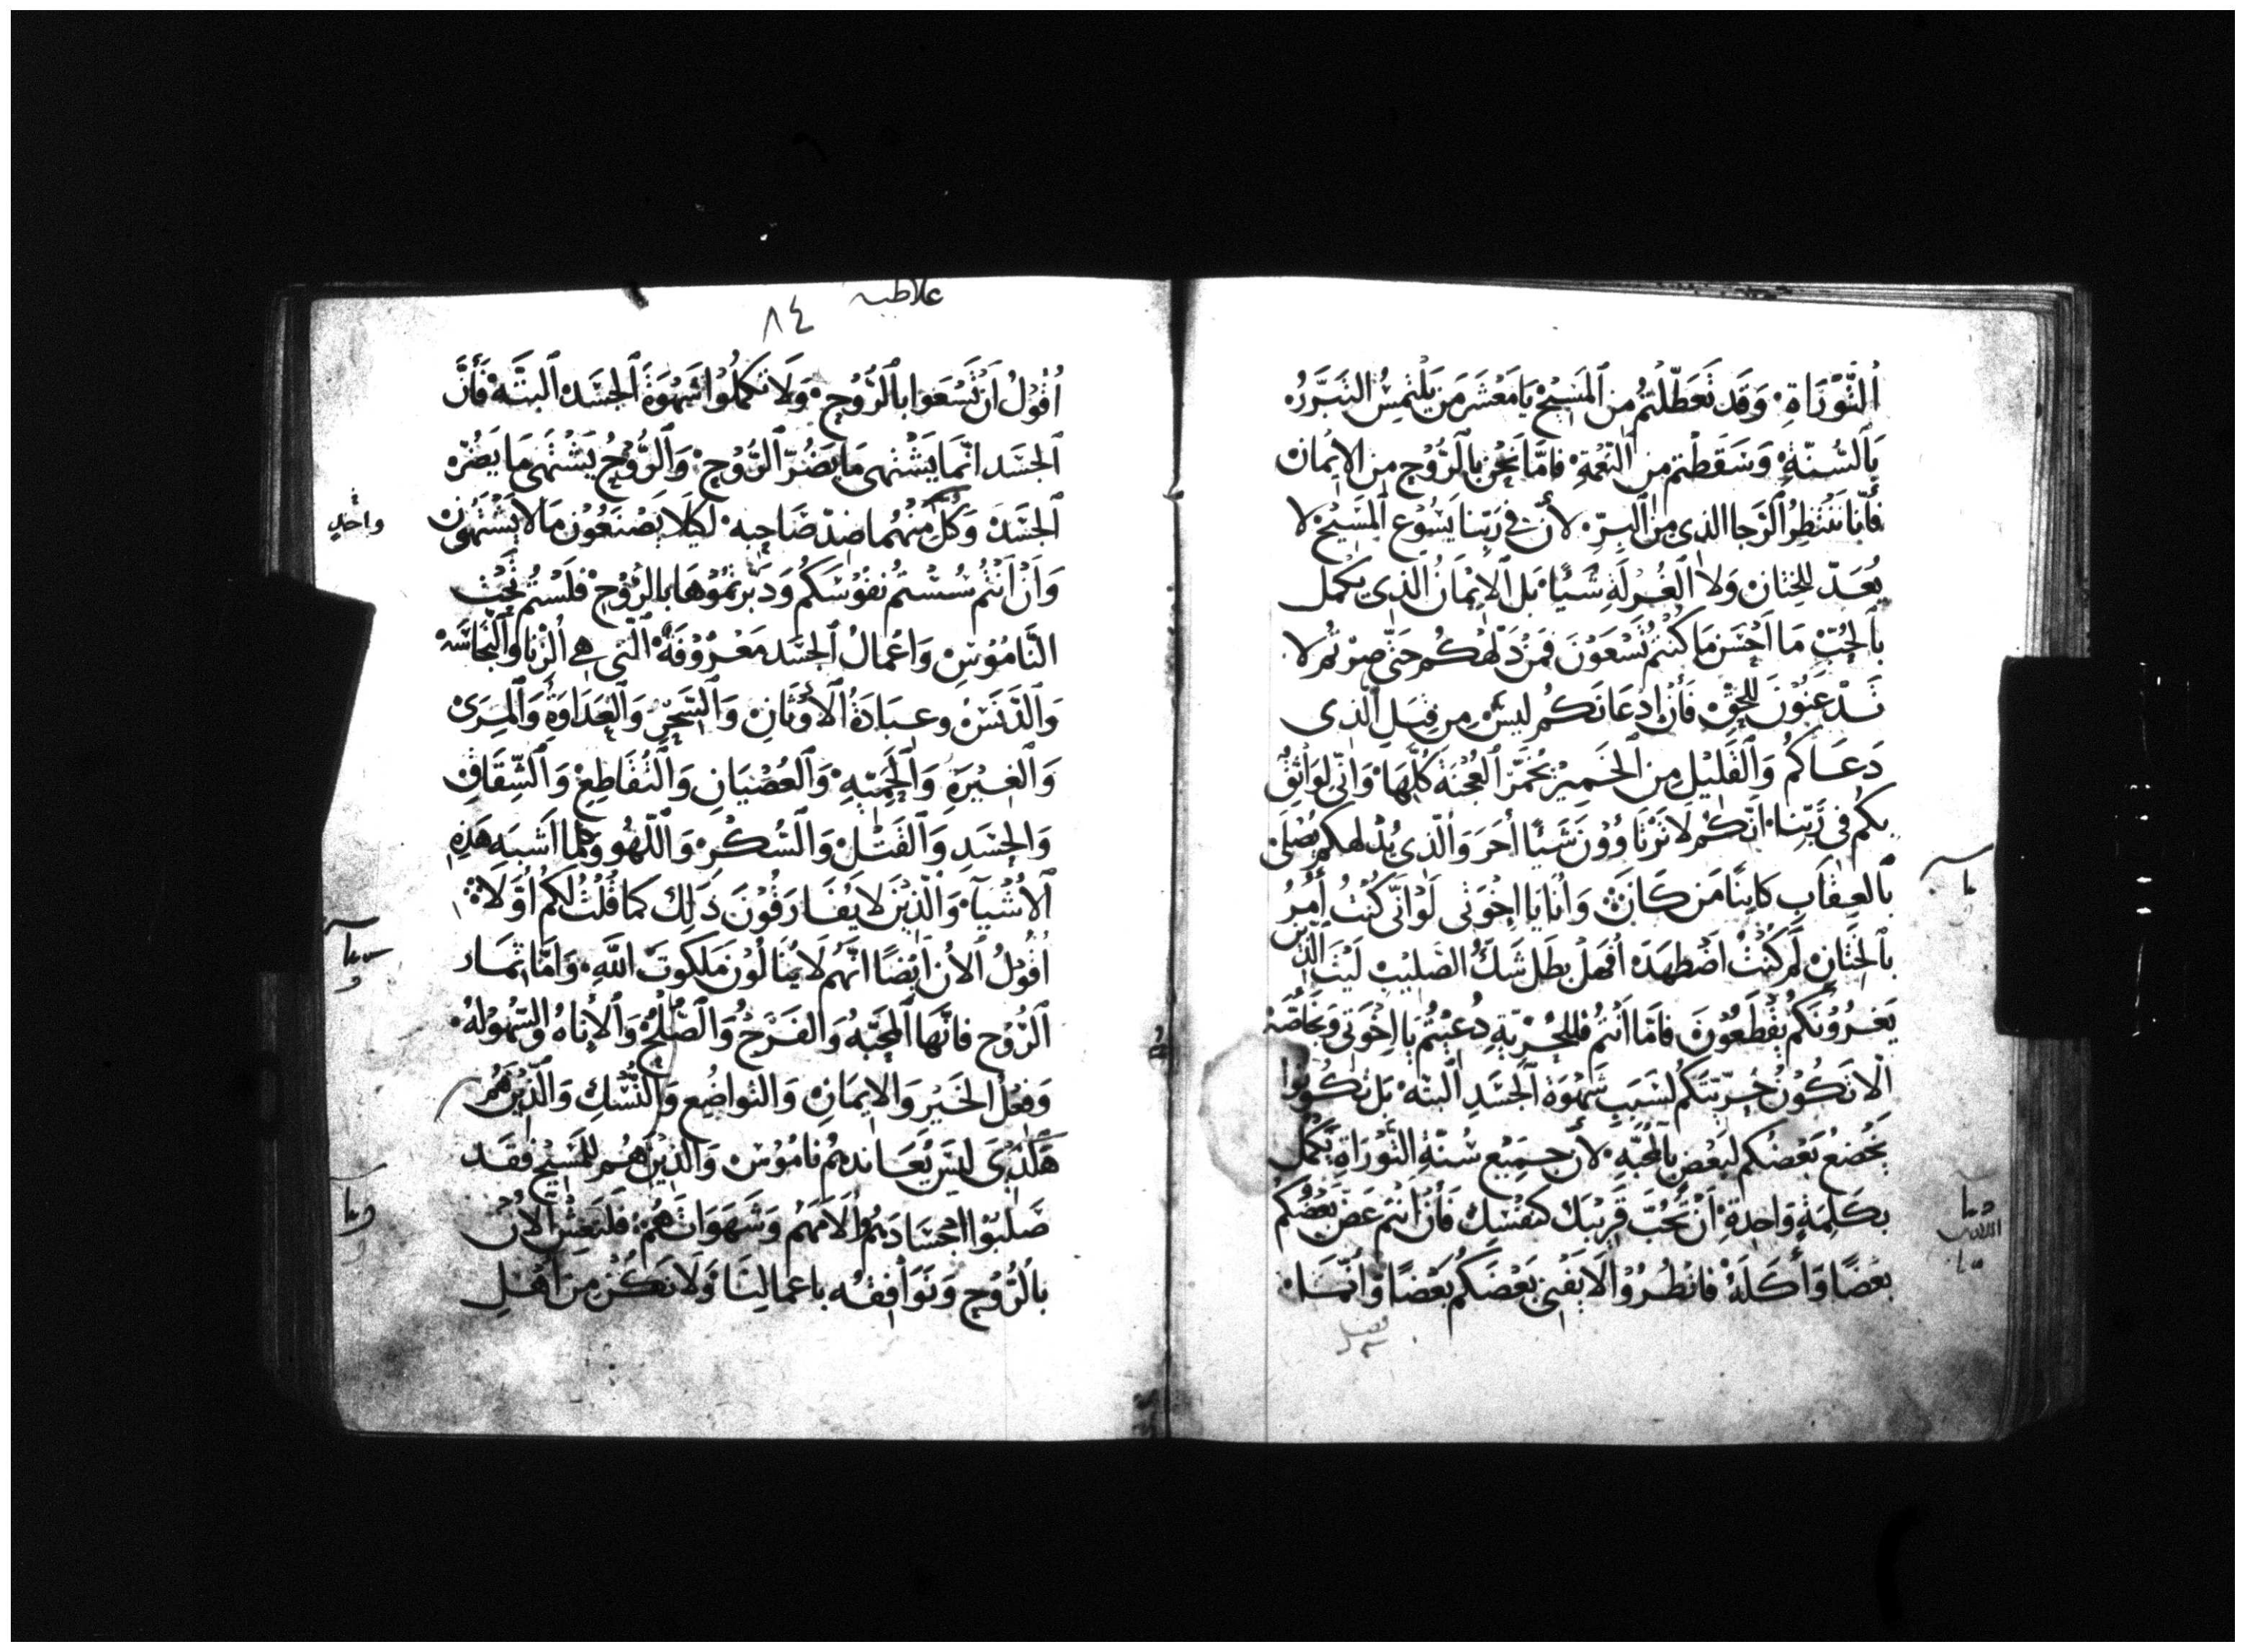 التَّوْرَاةِ. وَقَد تَعَطَّلْتُم مِن المَسِيْحِ يَا مَعْشَرَ مَن يَلْتمِسُ التَبَرَّرُ.
بِالسُّنّةِ وَسَقَطتم مِن النِّعْمَةِ فامّا نَحْن بالرُّوْحِ مِن الايمان
فأنّا نَنْتظِرُ الرَجا الذي مِن البِرِّ. لأنّ في رَبِّنا يَسُوْع المَسِيْحِ لا
يُعَدّ للخِتان وَلا الغُرلَةِ شَيْئًا. بَل الاِيْمَانُ الذِي يكمل
بالحُبّ مَا اَحْسَن مَا كُنْتُم تَسْعَوْنَ فَمن دَلّهكم حَتّى صِرْتُم لا
تَذْعَنُوْنَ لِلحِقّ فَأنّ ادعَانَكُم لَيْسَ مِن قِبَلِ الّذِى
دَعَاكُم وَالقَلِيْل مِن الخَمِيْر يُخَمّر العَجْنَةَ كُلّهَا وَانّي لَوَاثِقٌ
بكُم في رَبّنا. انّكُم لا تَرْتَأوُوْنَ شَيْئًا أخَرَ وَالّذِى يُدَلهكم يُصْلَى
بالعِقَابِ كايِنًا مَن كَانَ وَأنا يَا اِخْوَتي لَوْ انّي كُنْتُ أمُرُ
بالخِتانِ لَم كُنْتُ اضْطهَدَ افهَل بَطَل شَكُّ الصَّلِيْبِ لَيْتَ الذِين
يَغرُوْنَكُم يُقْطَعُوْنَ فامّا اَنتُم فللحُرّيّةِ دُعِيْتُم يَا اِخْوَتي وَبخَاصّة
الا تَكُوْن حُرّيّتكُم لسَبَبِ شَهْوَةِ الجَسَدِ البَتّه بَل تكُوْنوا
يَخْضَعُ بَعْضُكُم لبَعْضٍ بالمَحَبّةِ. لأن جَمِيْع سُنّةِ التّوْرَاةِ يَكْمُل
بكَلِمَةٍ وَاحِدَةٍ أنْ تُحِبّ قَرِيْبَك كنَفْسِك فَأن أنتُم عَضّ بَعْضُكُم
بعْضًا وَأكَلَهُ فانظُرُوْا لا يَفْنى بَعْضُكُم بَعْضًا وَانّمَا
فصل
غلاطيه
٨٤
اَقوْلُ اَنْ تَسْعَوا بالرُّوْحِ. وَلا تكمِلُوا شَهْوَةَ الجَسَد البتّه فَأنّ
الجسَد انّمَا يَشْتهى مَا يَضُرّ الرُّوْح وَالرُّوْحُ يَشْتَهى مَا يَضُرّ
الجسَد وَكلّ مِنْهُمَا ضِدّ صَاحِبه. لكيْلا يَصْنَعُوْن مَا لا يَشْتَهُوْن
واحدٍ
وَاَنْ اَنْتُم سُسْتُم نفوْسَكُم وَدَبّرتمُوْهَا بالرُّوْحِ فلَسْتُم تَحْتَ
النّامُوْسِ وَاعْمَالُ الجَسَد مَعْرُوْفَةٌ الّتي هي الزّنا وَالنجَاسَه
وَالدّنَسَ وعبَادَةُ الأوْثَانِ وَالسِّحْرِ وَالعَدَاوَةَ وَالمِرَى
وَالغيْرَةِ وَالحَمِيّهِ وَالعُصْيَانِ وَالتّقاطِعِ وَالشِّقَاقِ
وَالحِسَدِ وَالقَتْلِ وَالسُّكْرِ وَاللّهُو وَكلما اَشبَه هَذِهِ
الأشْيَآ. وَالّذِيْنَ لا يُفَارقُوْنَ ذَلِك كمَا قُلْتُ لكُم أوّلا
اَقُوْلُ الأن اَيْضًا انّهُم لا يَنَالُوْن مَلَكُوْتَ اللّهِ. وَامّا ثِمَار
الرُّوْحِ فانّهَا المحَبّهُ وَالفَرَحُ وَالصُّلْحِ وَالأناهُ وَالسّهُوْلَهُ.
وَفِعْلُ الخَيْر وَالايمَانِ وَالتواضُع وَالنُّسْكِ وَالّذِيْنَ هُم
هَكَذَى لَيس يُعَاندهُم نامُوْس وَالّذِيْنَ هُم للمَسِيْحِ فقَد
صَلبُوْا اجْسَادَهُم وَالاَمَهُم وَشَهَوَاتَهُمْ فَلنَعِشْ الآن
بالرُّوْحِ وَنوَافِقه باعمالِنَا وَلا نَكُن مِن اهْل